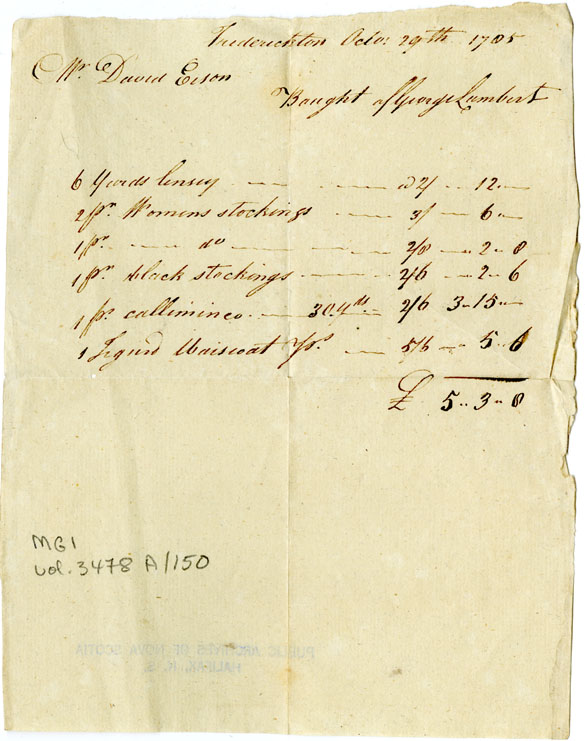 Frederickton Octo: 29th 1785
Mr. David Eison
Bought of George Lambert
6 Yards linsey — — — @ 2/ — 12 —
2 pr. Womens stockings — — 3/ — 6 —
1 pr. — — do — — — 2/8 — 2 - 8
1 pr. black stockings — — — 2/6 — 2 - 6
1 ps. calliminco — 30 yds — 2/6 3 - 15 —
1 figurd Waiscoat — 5/6 — 5 - 6
£ 5 - 3 - 8
MG1
vol. 3478 A/150
PUBLIC ARCHIVES OF NOVA SCOTIA
HALIFAX, N. S.